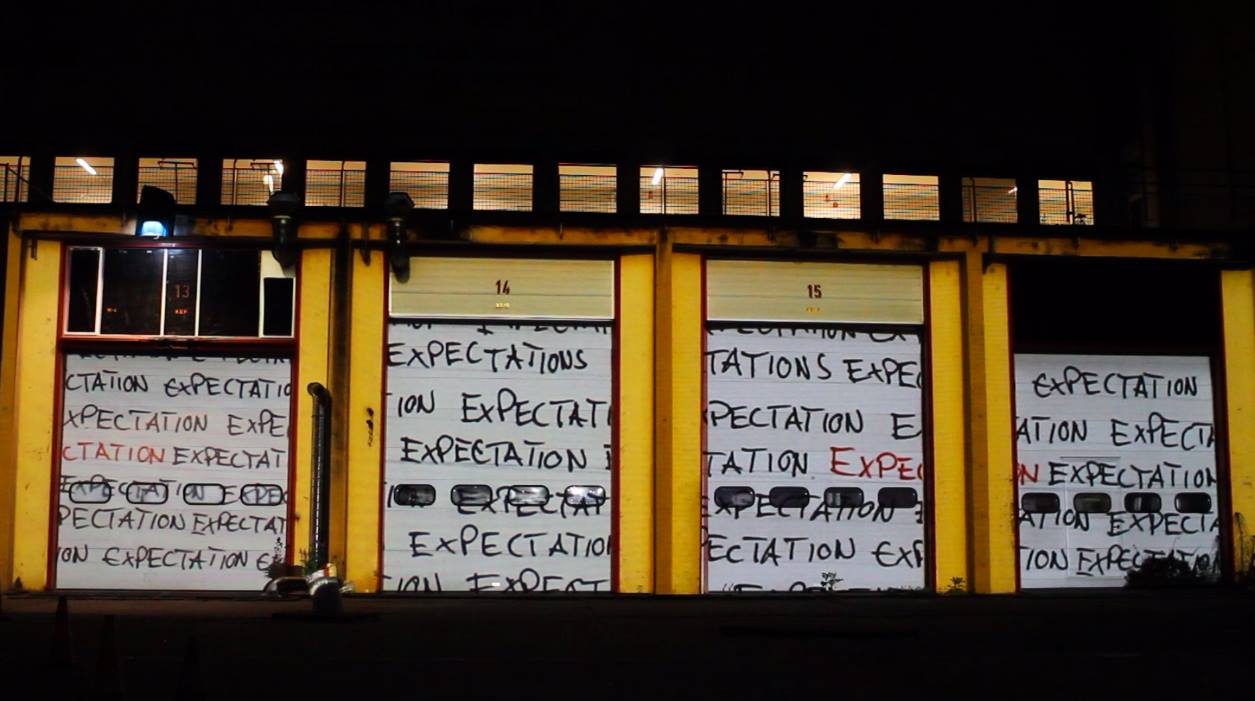 13
CTATION EXPECTATIO
XPECTATION EXPE
CTATION EXPECTAT
EXPECTATION EXPEC
PECTATION EXPECTAT
ION EXPECTATION E
14
EXPECTATIONS
ION EXPECTATI
EXPECTATION
EXPECTAT
EXPECTATIO
ION EXPECT
15
TATIONS EXPEC
PECTATION E
TATION EXPEC
EXPECTATION
ECTATION EXP
EXPECTATION
ATION EXPECTA
N EXPECTATION
ATION EXPECTA
ION EXPECTATION